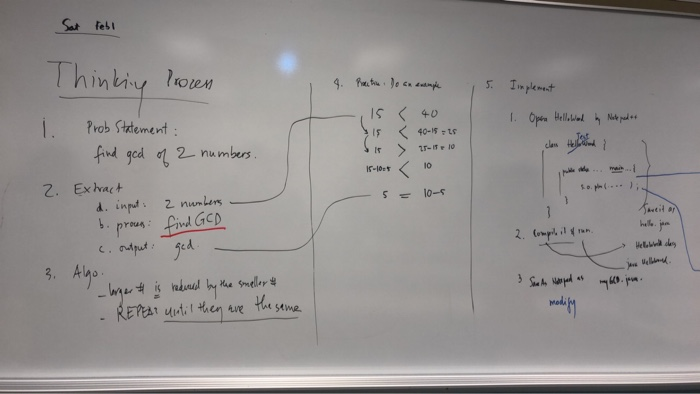 Sat Feb1
Thinking Process
1. Prob Statement:
find gcd of 2 numbers.
2. Extract
a. input: 2 numbers
b. process: find GCD
c. output: gcd.
3. Algo.
- larger # is reduced by the smaller #
- REPEAT until they are the same
4. Practice. Do an example
15 < 40
15 < 40-15=25
15 > 25-15=10
15-10=5 < 10
5 = 10-5
5. Implement
1. Open HelloWorld in Notepad++
Test
class HelloWorld {
public static ... main ... {
s.o. pln (.... );
}
}
Save it as
hello. java
2. compile it & run.
HelloWorld class
java HelloWorld.
3 Save As Notepad as myGCD.java.
modify